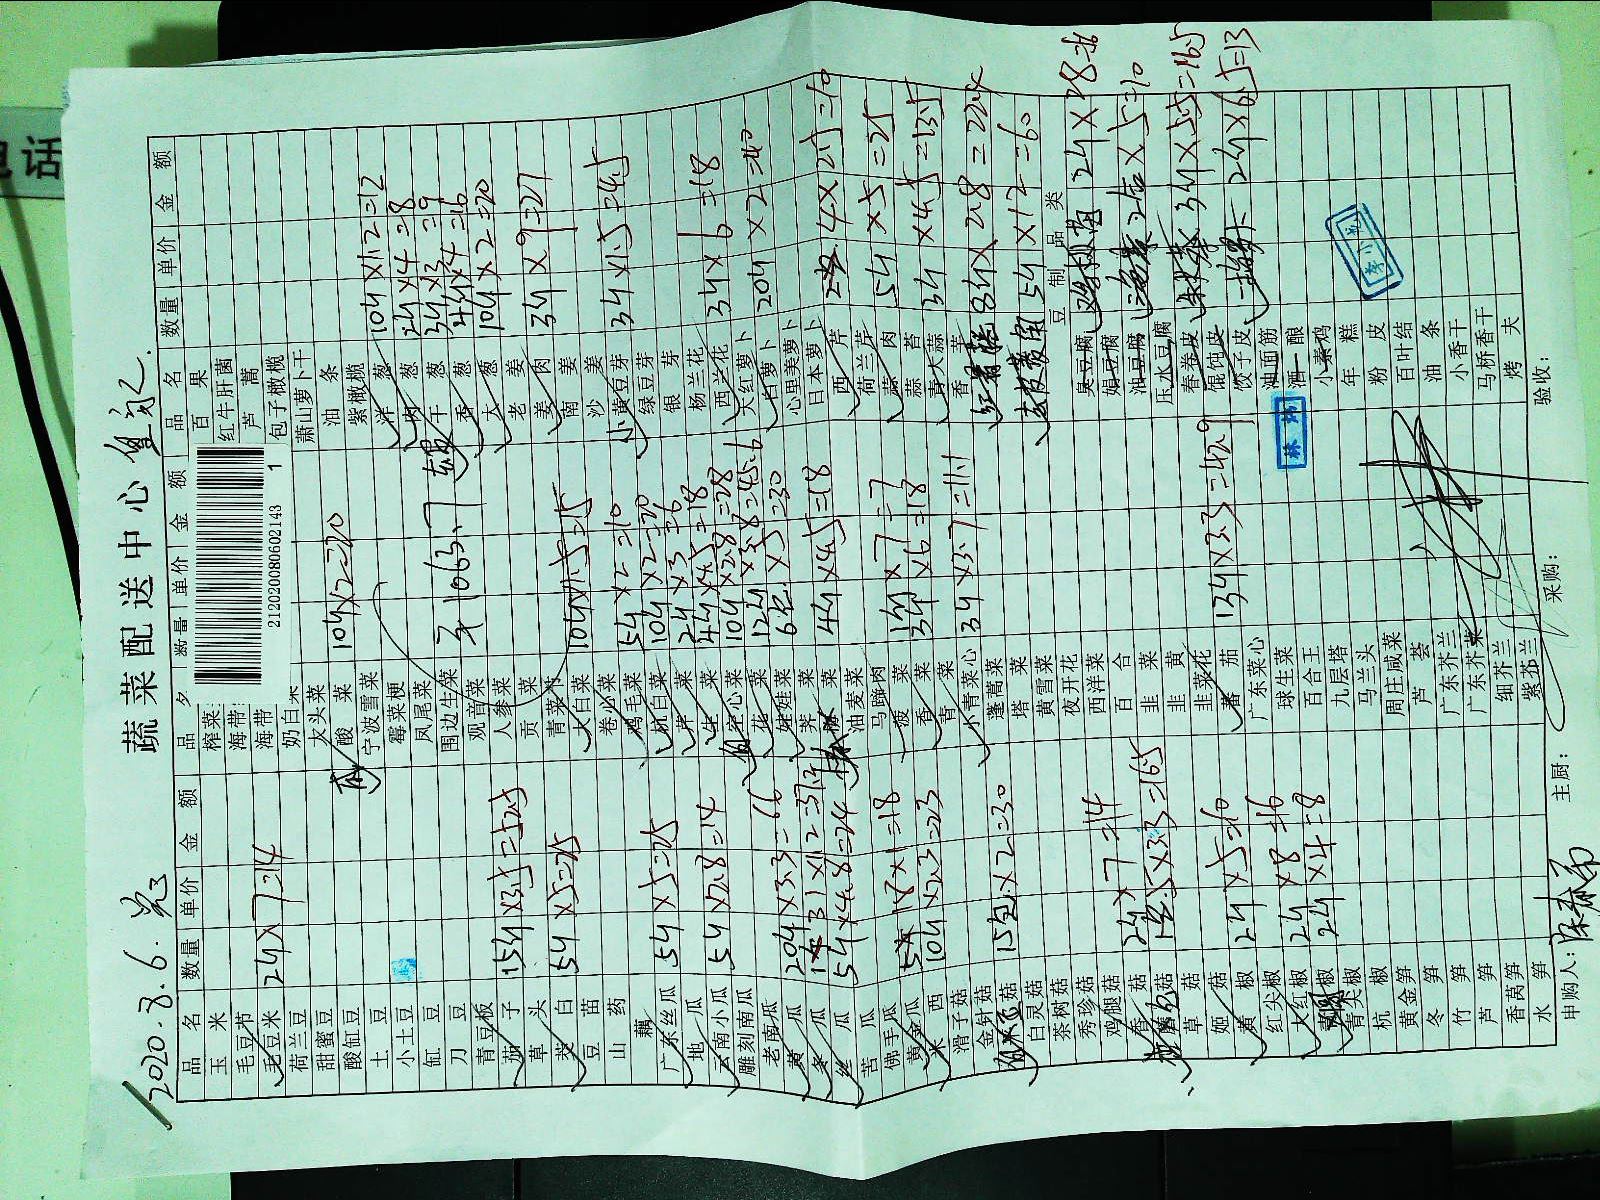 电话
2020.8.6.
蔬菜配送中心
品 名 数量 单价 金 额
玉 米
毛豆节
毛豆米 2斤×7=14
荷兰豆
甜蜜豆
酸缸豆
土 豆
小土豆
缸 豆
刀 豆
青豆板
茄 子 15斤×3.5=52.5
草 头
茭 白 5斤×5=25
豆 苗
山 药
藕
广东丝瓜 5斤×5=25
地 瓜
云南小瓜 5斤×2.8=14
雕刻南瓜
老南瓜
黄 瓜 20斤×3.3=66
冬 瓜 31×1.2=37.2
丝 瓜 5斤×4.8=24
苦 瓜
佛手瓜
黄金瓜 18×1=18
米 西 10斤×2.3=23
滑子菇
金针菇
白灵菇 15包×2=30
茶树菇
秀珍菇
鸡腿菇
香 菇 2斤×7=14
蘑菇 5×3.3=16.5
草 菇
姬 菇
黄 椒 2斤×5=10
红尖椒
大红椒 2斤×8=16
青尖椒 2斤×4=8
杭 椒
黄金笋
冬 笋
竹 笋
芦 笋
香莴笋
水 笋
品 数量 单价 金 额
榨菜
海带
海带
奶白菜
大头菜
酸 菜 10斤×2=20
宁波雪菜
霉菜梗
凤尾菜
围边生菜
观音菜
人参菜
贡 菜
青菜
大白菜 10斤×1.5=15
卷心菜
鸡毛菜 5斤×2=10
杭白菜 10斤×2=20
芹 菜 2斤×3=6
生 菜 4斤×4.5=18
空心菜 10斤×2.8=28
花 菜 12斤×3.8=45.6
娃娃菜 6包×5=30
荠 菜
4斤×4.5=18
油麦菜
马蹄肉
菠 菜 1斤×7=7
香 菜 3斤×6=18
青 菜
小青菜心 3斤×3.7=11.1
蓬蒿菜
塔 菜
黄雪菜
夜开花
西洋菜
百 合
韭 菜
韭 黄
韭菜花
番 茄 13斤×3.3=42.9
广东菜心
球生菜
百合王
九层塔
马兰头
周庄咸菜
芦 荟
广东芥兰
广东芥菜
细芥兰
紫芥兰
1063.7
212020080602143 1
品 名 数量 单价 金 额
百 果
红牛肝菌
芦 蒿
包子橄榄
萧山萝卜干
油 条
紫橄榄
洋 葱 10斤×1.2=12
肉 葱 2斤×4=8
干 葱 3斤×3=9
香 葱 4斤×4=16
大 葱 10斤×2=20
老 姜
姜 肉 3斤×9=27
南 姜
沙 姜
小黄豆芽 3斤×1.5=4.5
绿豆芽
银 芽
杨兰花
西兰花 3斤×6=18
大红萝卜
白萝卜 20斤×2=40
心里美萝卜
日本萝卜
西 芹 4×2.5=10
荷兰芹
蒜 肉 5斤×5=25
蒜 苔
青大蒜 3斤×4.5=13.5
香 芋
8斤×2.8=22.4
5斤×12=60
豆 制 品 类
臭豆腐 2斤×28=56
娟豆腐
油豆腐 2×5=10
压水豆腐
春卷皮 3斤×5.5=16.5
馄饨皮
饺子皮 2斤×6.5=13
油面筋
酒 酿
小素鸡
年 糕
粉 皮
百叶结
油 条
小香干
马桥香干
烤 夫
申购人:
主厨:
采购:
验收: